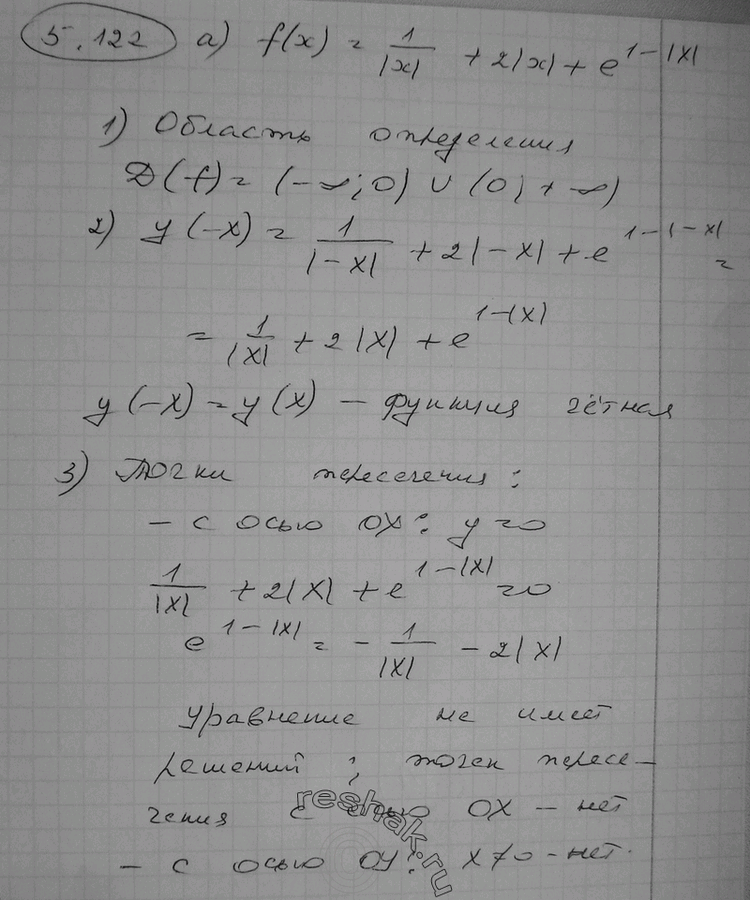 5.122 а) f(x) = 1/|x| + 2|x| + e^(1-|x|)
1) Область определения
D(f) = (-∞; 0) ∪ (0; +∞)
2) y(-x) = 1/|-x| + 2|-x| + e^(1-|-x|) =
= 1/|x| + 2|x| + e^(1-|x|)
y(-x) = y(x) — функция чётная
3) Точки пересечения:
- с осью OX: y=0
1/|x| + 2|x| + e^(1-|x|) = 0
e^(1-|x|) = - 1/|x| - 2|x|
Уравнение не имеет
решений; точек пересе-
чения с осью OX - нет
- с осью OY: x≠0 - нет.
reshak.ru